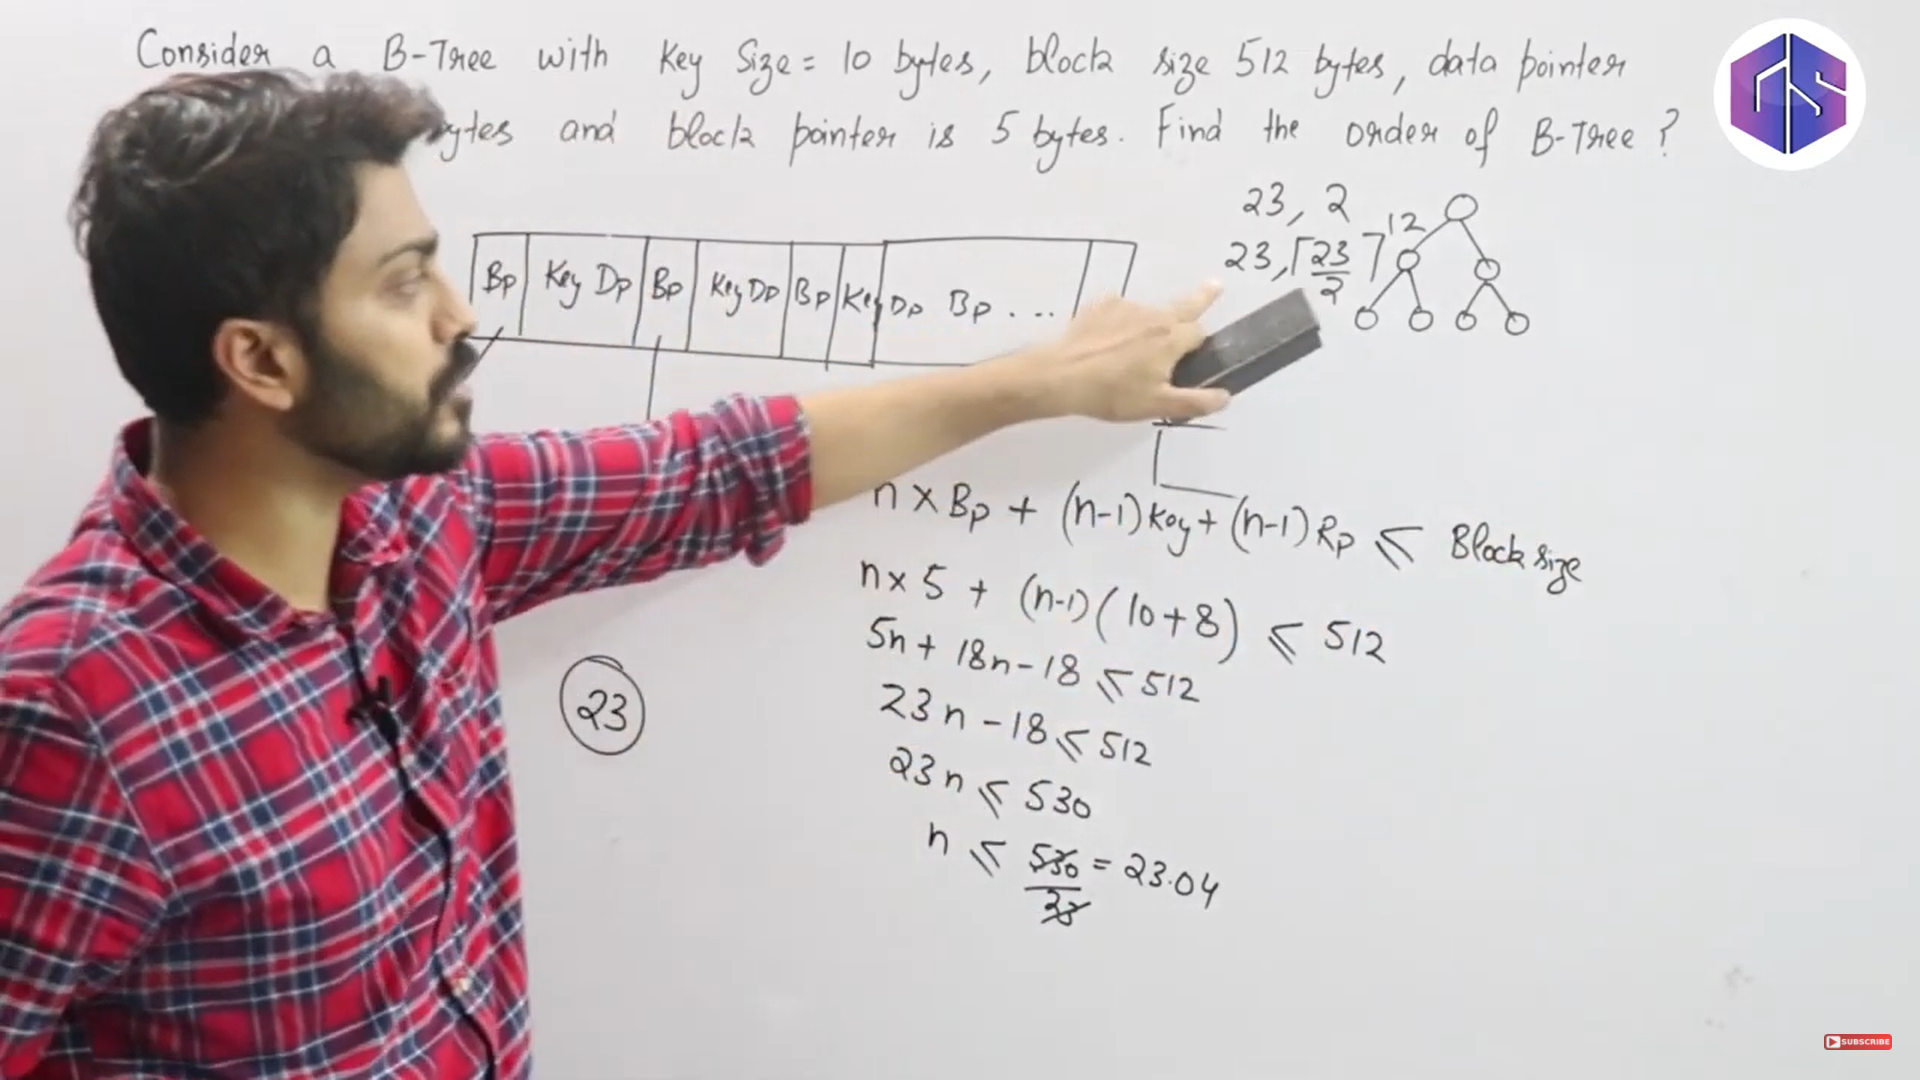 Consider a B-Tree with Key Size = 10 bytes, block size 512 bytes, data pointer
and block pointer is 5 bytes. Find the order of B-Tree ?
23, 2
23, ⌈23/2⌉ 12
Bp Key Dp Bp Key Dp Bp Key Dp Bp ...
n × Bp + (n-1) Key + (n-1) Rp ≤ Block size
n × 5 + (n-1) (10+8) ≤ 512
5n + 18n - 18 ≤ 512
23n - 18 ≤ 512
23n ≤ 530
n ≤ 530/23 = 23.04
23
SUBSCRIBE